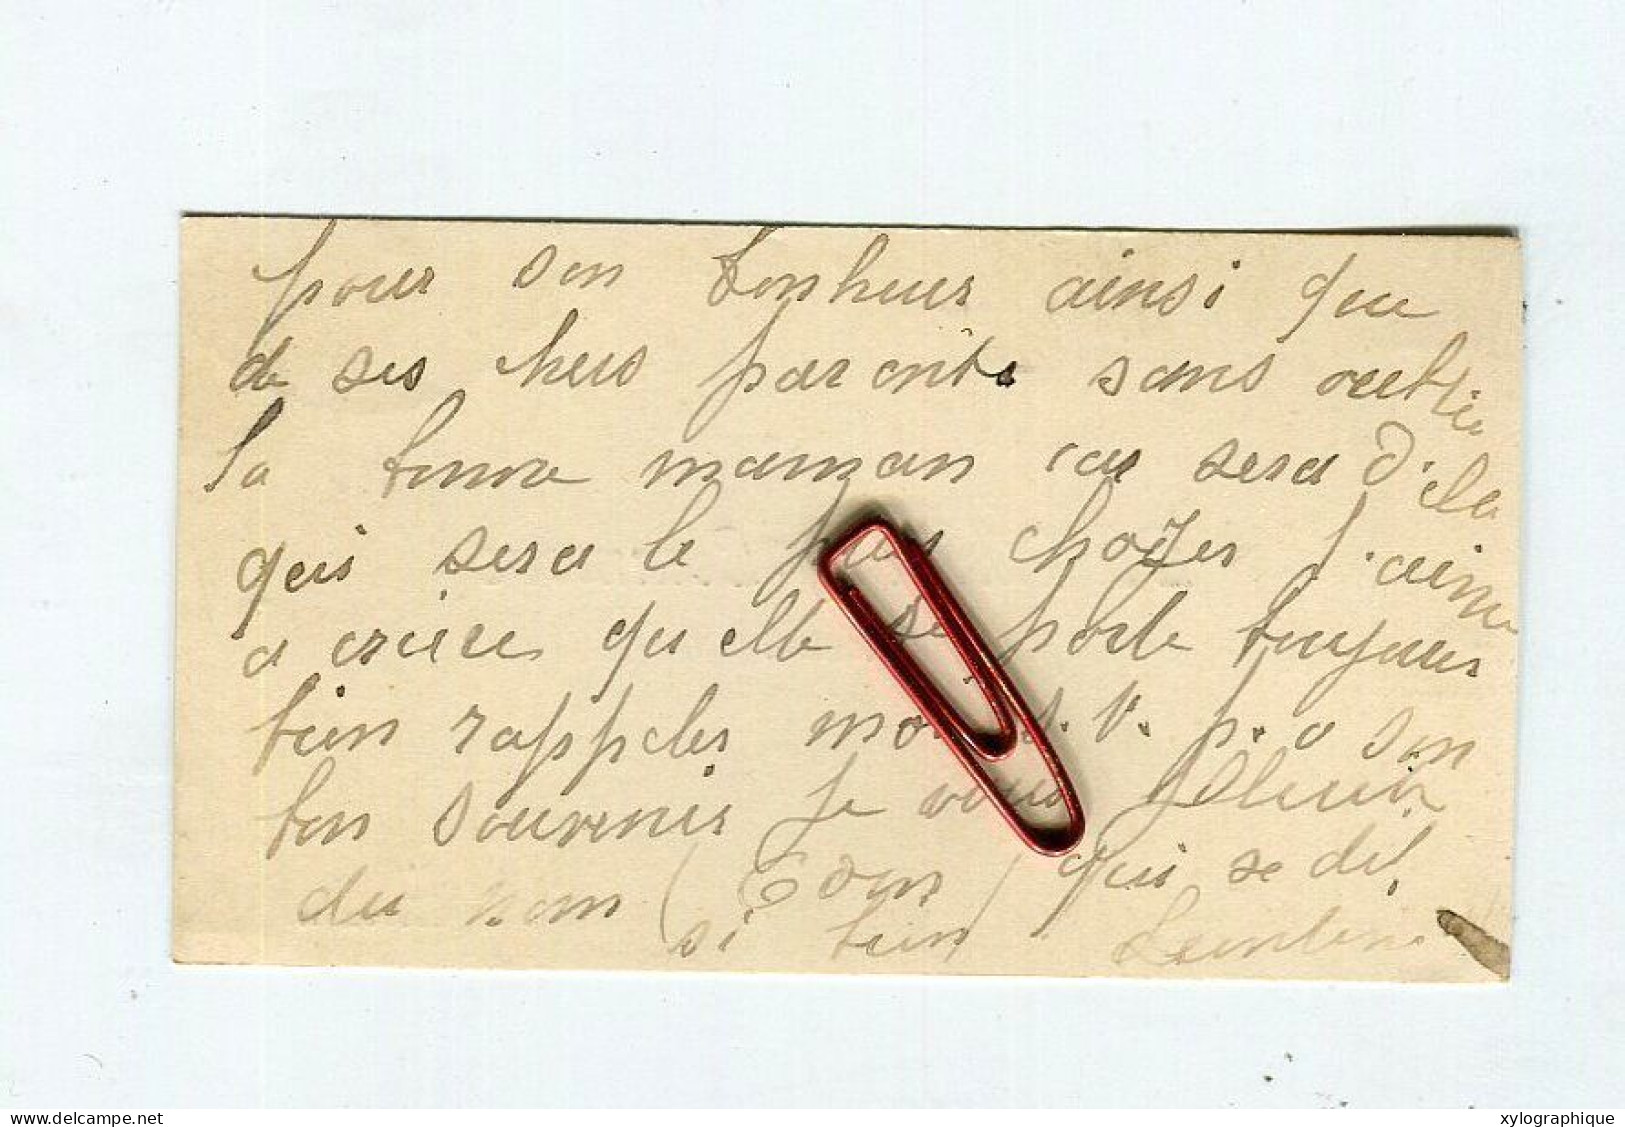 pour son bonheur ainsi que
de ses chers parents sans oublie
la bonne maman car sera d'ela
qui sera le plus j'aime
a crire qu elle se porte toujours
bien rappeler moi s. v. p. a son
bon souvenir je vous
du nom ( ) qui se dit
si bien
www.delcampe.net
xylographique